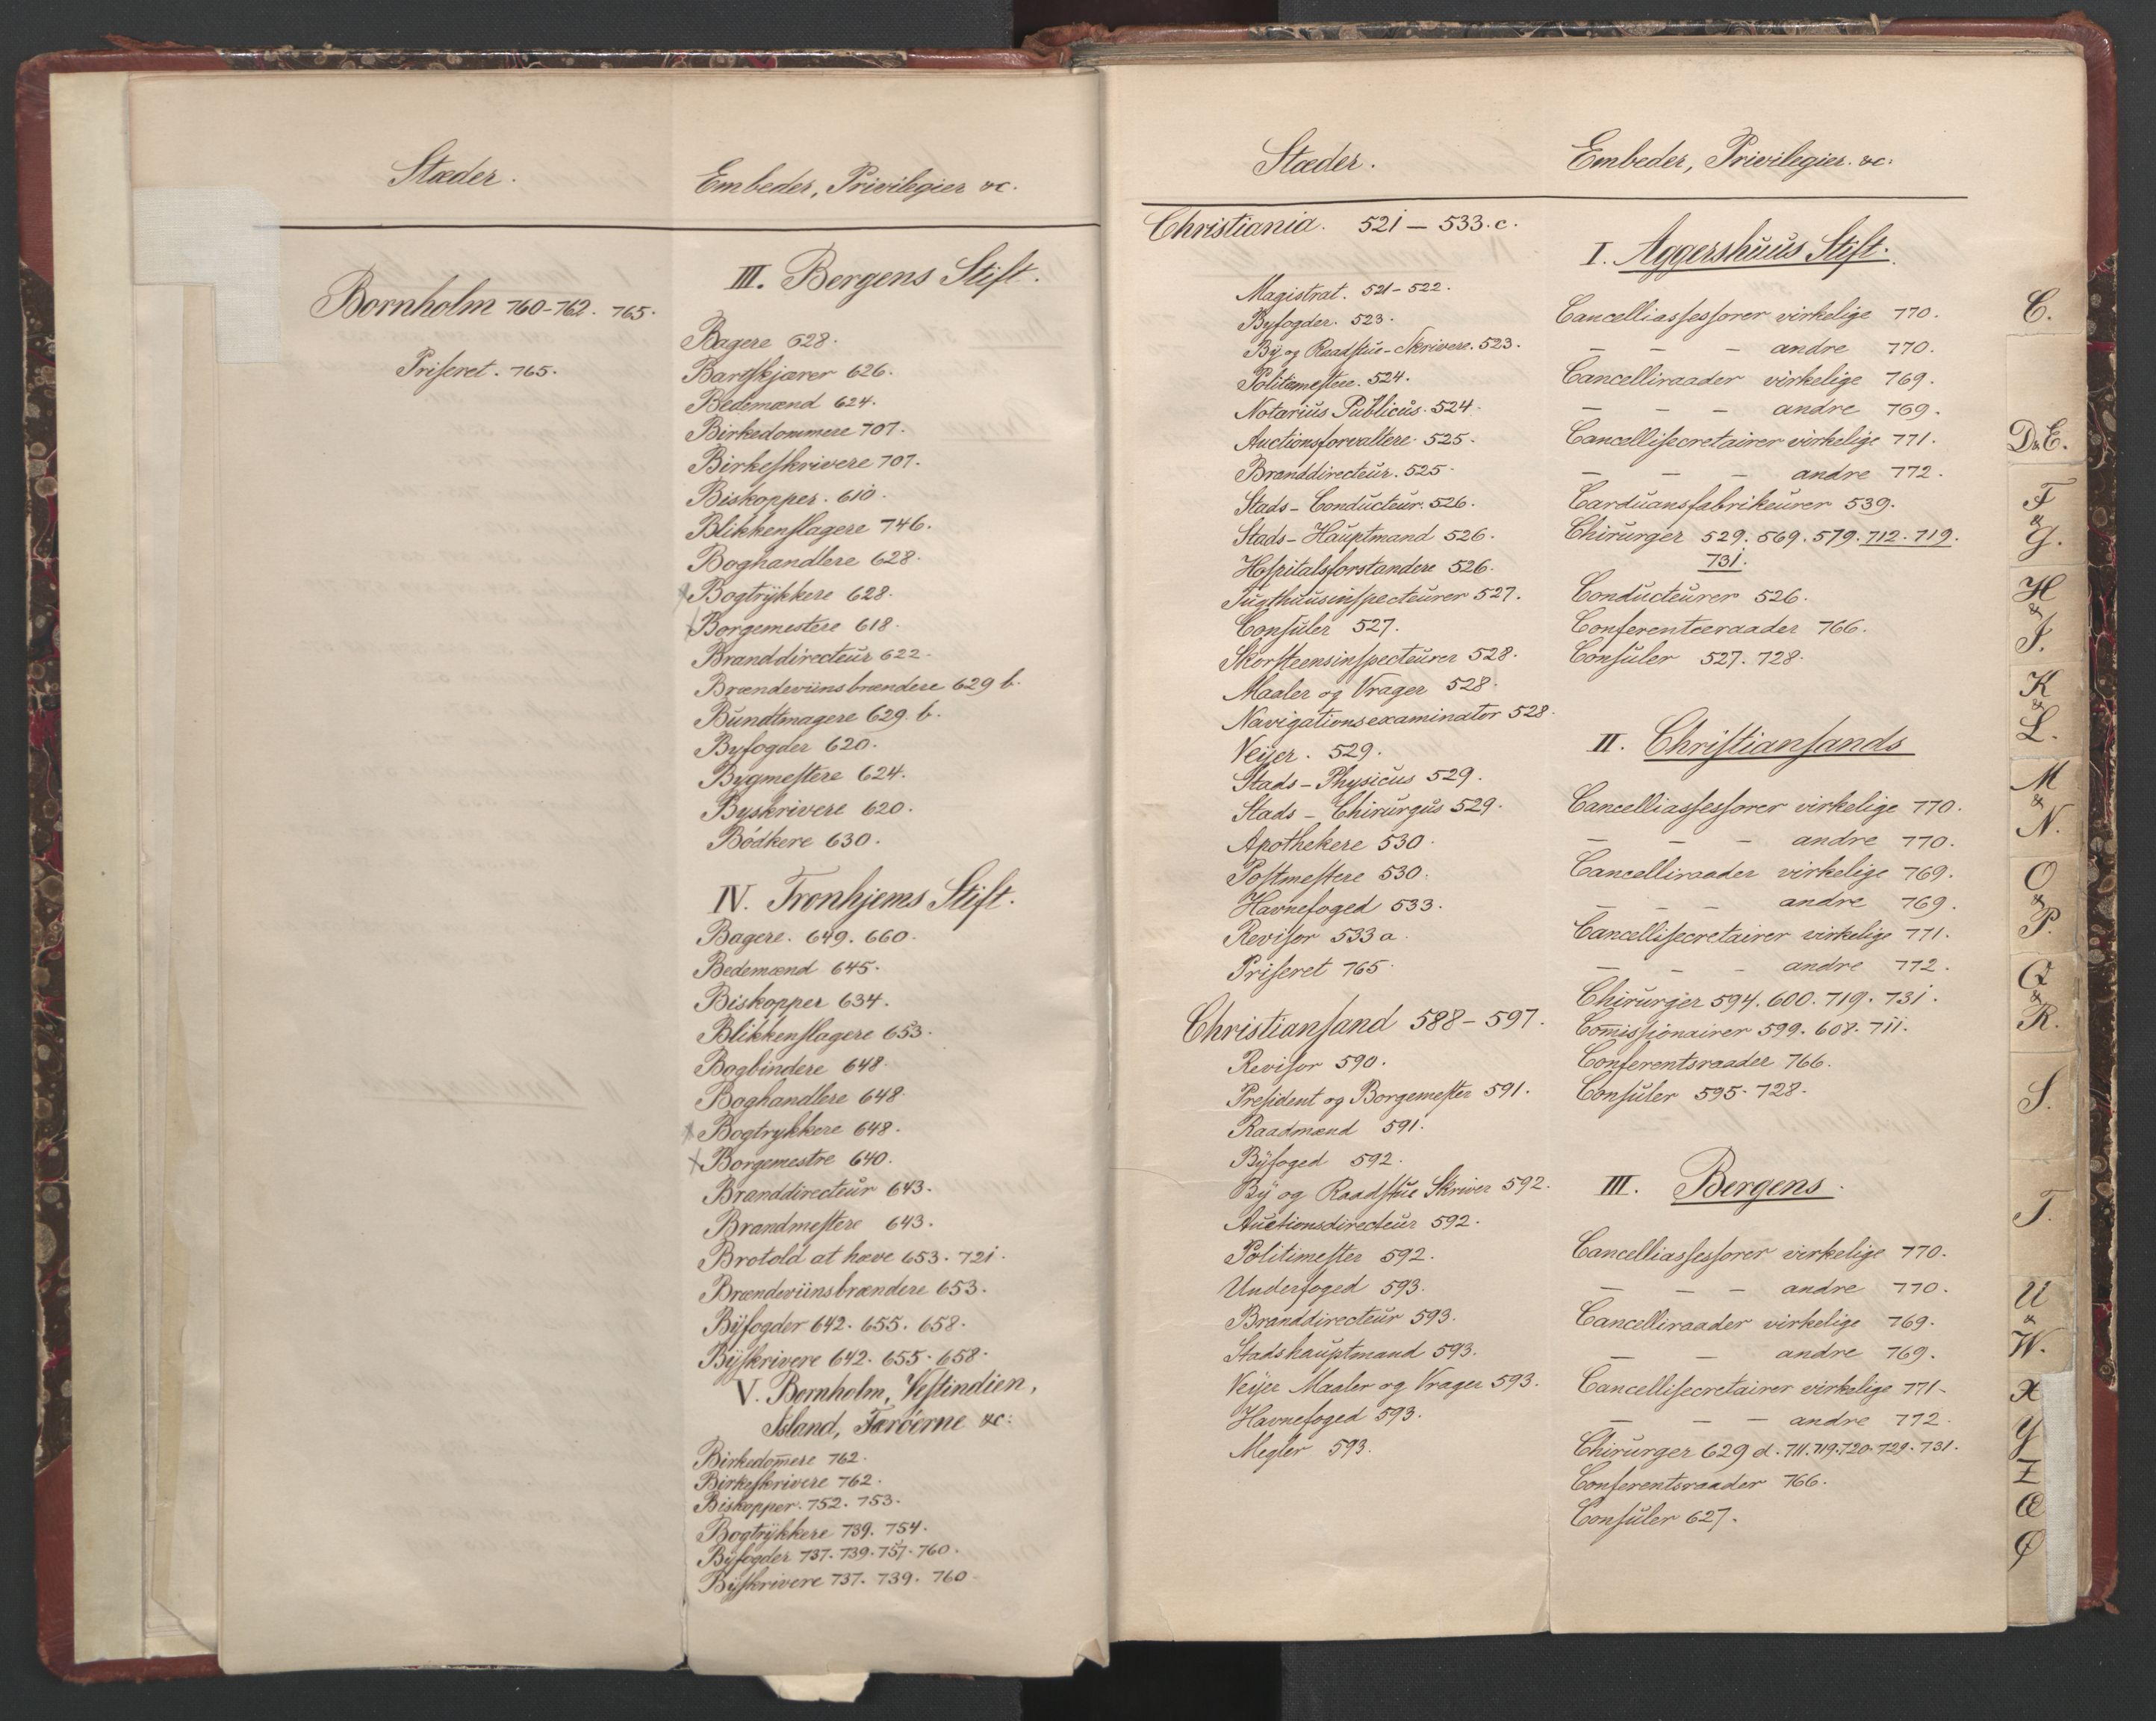 Stæder.
Bornholm 760-762. 765.
Priseret. 765.
Embeder, Privilegier &c.
III. Bergens Stift.
Bagere 628.
Bartskjærer 626.
Bedemænd 624.
Birkedommere 707.
Birkeskrivere 707.
Biskopper. 610.
Blikkenslagere 746.
Boghandlere 628.
Bogtrÿkkere 628.
Borgemestere 618.
Branddirecteur 622.
Brændeviinsbrændere 629 b.
Bundtmagere 629. b.
Byfogder 620.
Bygmestere 624.
Byskrivere 620.
Bödkere 630.
IV. Tronhjems Stift.
Bagere. 649. 660.
Bedemænd 645.
Biskopper 634.
Blikkenslagere 653.
Bogbindere 648.
Boghandlere 648.
Bogtrykkere 648.
Borgemestre 640.
Branddirecteur 643.
Brandmestere 643.
Brotold at hæve 653. 721.
Brændeviinsbrændere 653.
Bÿfogder 642. 655. 658.
Bÿskrivere 642. 655. 658.
V. Bornholm, Vestindien,
Island, Færöerne &c:
Birkedom̄ere 762.
Birkeskrivere 762.
Biskopper. 752. 753.
Bogtrÿkkere 739. 754.
Bÿfogder 737. 739. 757. 760.
Bÿskrivere 737. 739. 760.
Stæder.
Christiania. 521 — 533. c.
Magistrat. 521-522.
Byfogder. 523.
Bÿ og Raadstue-Skrivere. 523.
Politimestere. 524.
Notarius Publicus. 524.
Auctionsforvaltere. 525.
Branddirecteur. 525.
Stads-Conducteur. 526.
Stads-Hauptmand 526.
Hospitalsforstandere 526.
Tugthuusinspecteurer 527.
Consuler 527.
Skorsteensinspecteurer 528.
Maaler og Vrager 528.
Navigationsexaminator 528.
Veÿer. 529.
Stads-Physicus 529.
Stads-Chirurgus 529.
Apothekere 530.
Postmestere 530.
Havnefoged 533.
Revisor 533 a.
Priseret 765.
Christiansand 588-597.
Revisor 590.
President og Borgemester 591.
Raadmænd 591.
Bÿfoged 592.
Bÿ og Raadstue Skriver 592.
Auctionsdirecteur 592.
Politimester 592.
Underfoged 593.
Branddirecteur 593.
Stadshauptmand 593.
Veÿer Maaler og Vrager 593.
Havnefoged 593.
Megler 593.
Embeder, Privilegier. &c:
I. Aggershuus Stift.
Cancelliassessorer virkelige 770.
— — — andre 770.
Cancelliraader virkelige 769.
— — — andre 769.
Cancellisecretairer virkelige 771.
— — — andre 772.
Carduansfabrikeurer 539.
Chirurger 529. 569. 579. 712. 719.
731.
Conducteurer 526.
Conferentceraader 766.
Consuler 527. 728.
II. Christiansands
Cancelliassessorer virkelige 770.
— — — andre 770.
Cancelliraader virkelige 769.
— — — andre 769.
Cancellisecretairer virkelige 771.
— — — andre 772.
Chirurger 594. 600. 719. 731.
Com̄issionairer 599. 608. 711.
Conferentsraader 766.
Consuler 595. 728.
III. Bergens.
Cancelliassessorer virkelige 770.
— — — andre 770.
Cancelliraader virkelige 769.
— — andre 769.
Cancellisecretairer virkelige 771.
— — — andre 772.
Chirurger 629 d. 711. 719. 720. 729. 731.
Conferentsraader 766.
Consuler 627.
C.
D&E.
F
&
G.
H
&
I.
K
&
L.
M
&
N.
O
&
P.
Q
&
R.
S.
T.
U
&
W.
X
Y
Z
Æ
Ø